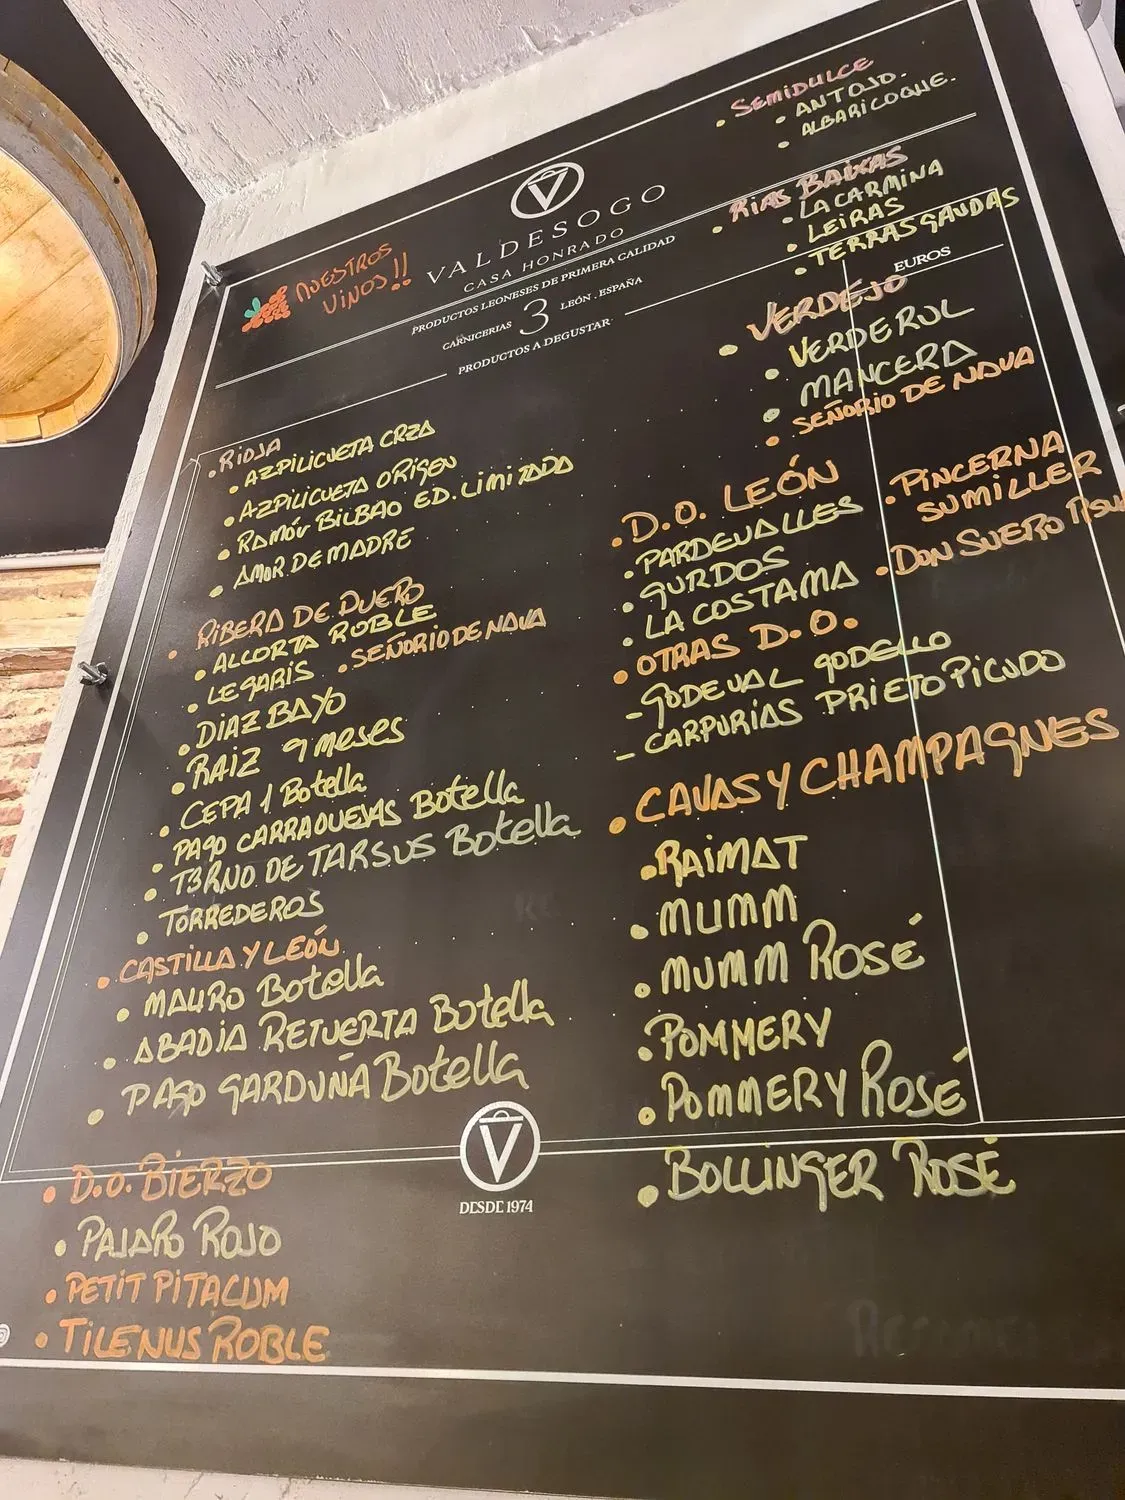 NUESTROS
VINOS!!
V
VALDESOGO
CASA HONRADO
PRODUCTOS LEONESES DE PRIMERA CALIDAD
CARNICERIAS 3 LEÓN . ESPAÑA
PRODUCTOS A DEGUSTAR
EUROS
• RIOJA
• AZPILICUETA CRZA
• AZPILICUETA ORIGEN
• RAMÓN BILBAO ED. LIMITADA
• AMOR DE MADRE
• RIBERA DE DUERO
• ALLORTA ROBLE
• LEGARIS • SEÑORIO DE NAVA
• DIAZ BAYO
• RAIZ 9 meses
• CEPA 1 Botella
• PAGO CARRAOVEJAS Botella
• TORNO DE TARSUS Botella
• TORREDEROS
• CASTILLA Y LEÓN
• MAURO Botella
• ABADIA RETUERTA Botella
• PAGO GARDUÑA Botella
• D.O. BIERZO
• PAJARO ROJO
• PETIT PITACUM
• TILENUS ROBLE
• SEMIDULCE
• ANTOJO.
• ALBARICOQUE.
• RIAS BAIXAS
• LA CARMINA
• LEIRAS
• TERRAS GAUDAS
• VERDEJO
• VERDERUL
• MANCERA
• SEÑORIO DE NAVA
• D.O. LEÓN
• PARDEVALLES
• GURDOS
• LA COSTAMA
• PINCERNA
SUMILLER
• DON SUERO
• OTRAS D.O.
- GODEVAL GODELLO
- CARPURIAS PRIETO PICUDO
• CAVAS Y CHAMPAGNES
• RAIMAT
• MUMM
• MUMM ROSÉ
• POMMERY
• POMMERY ROSÉ
• BOLLINGER ROSÉ
V
DESDE 1974